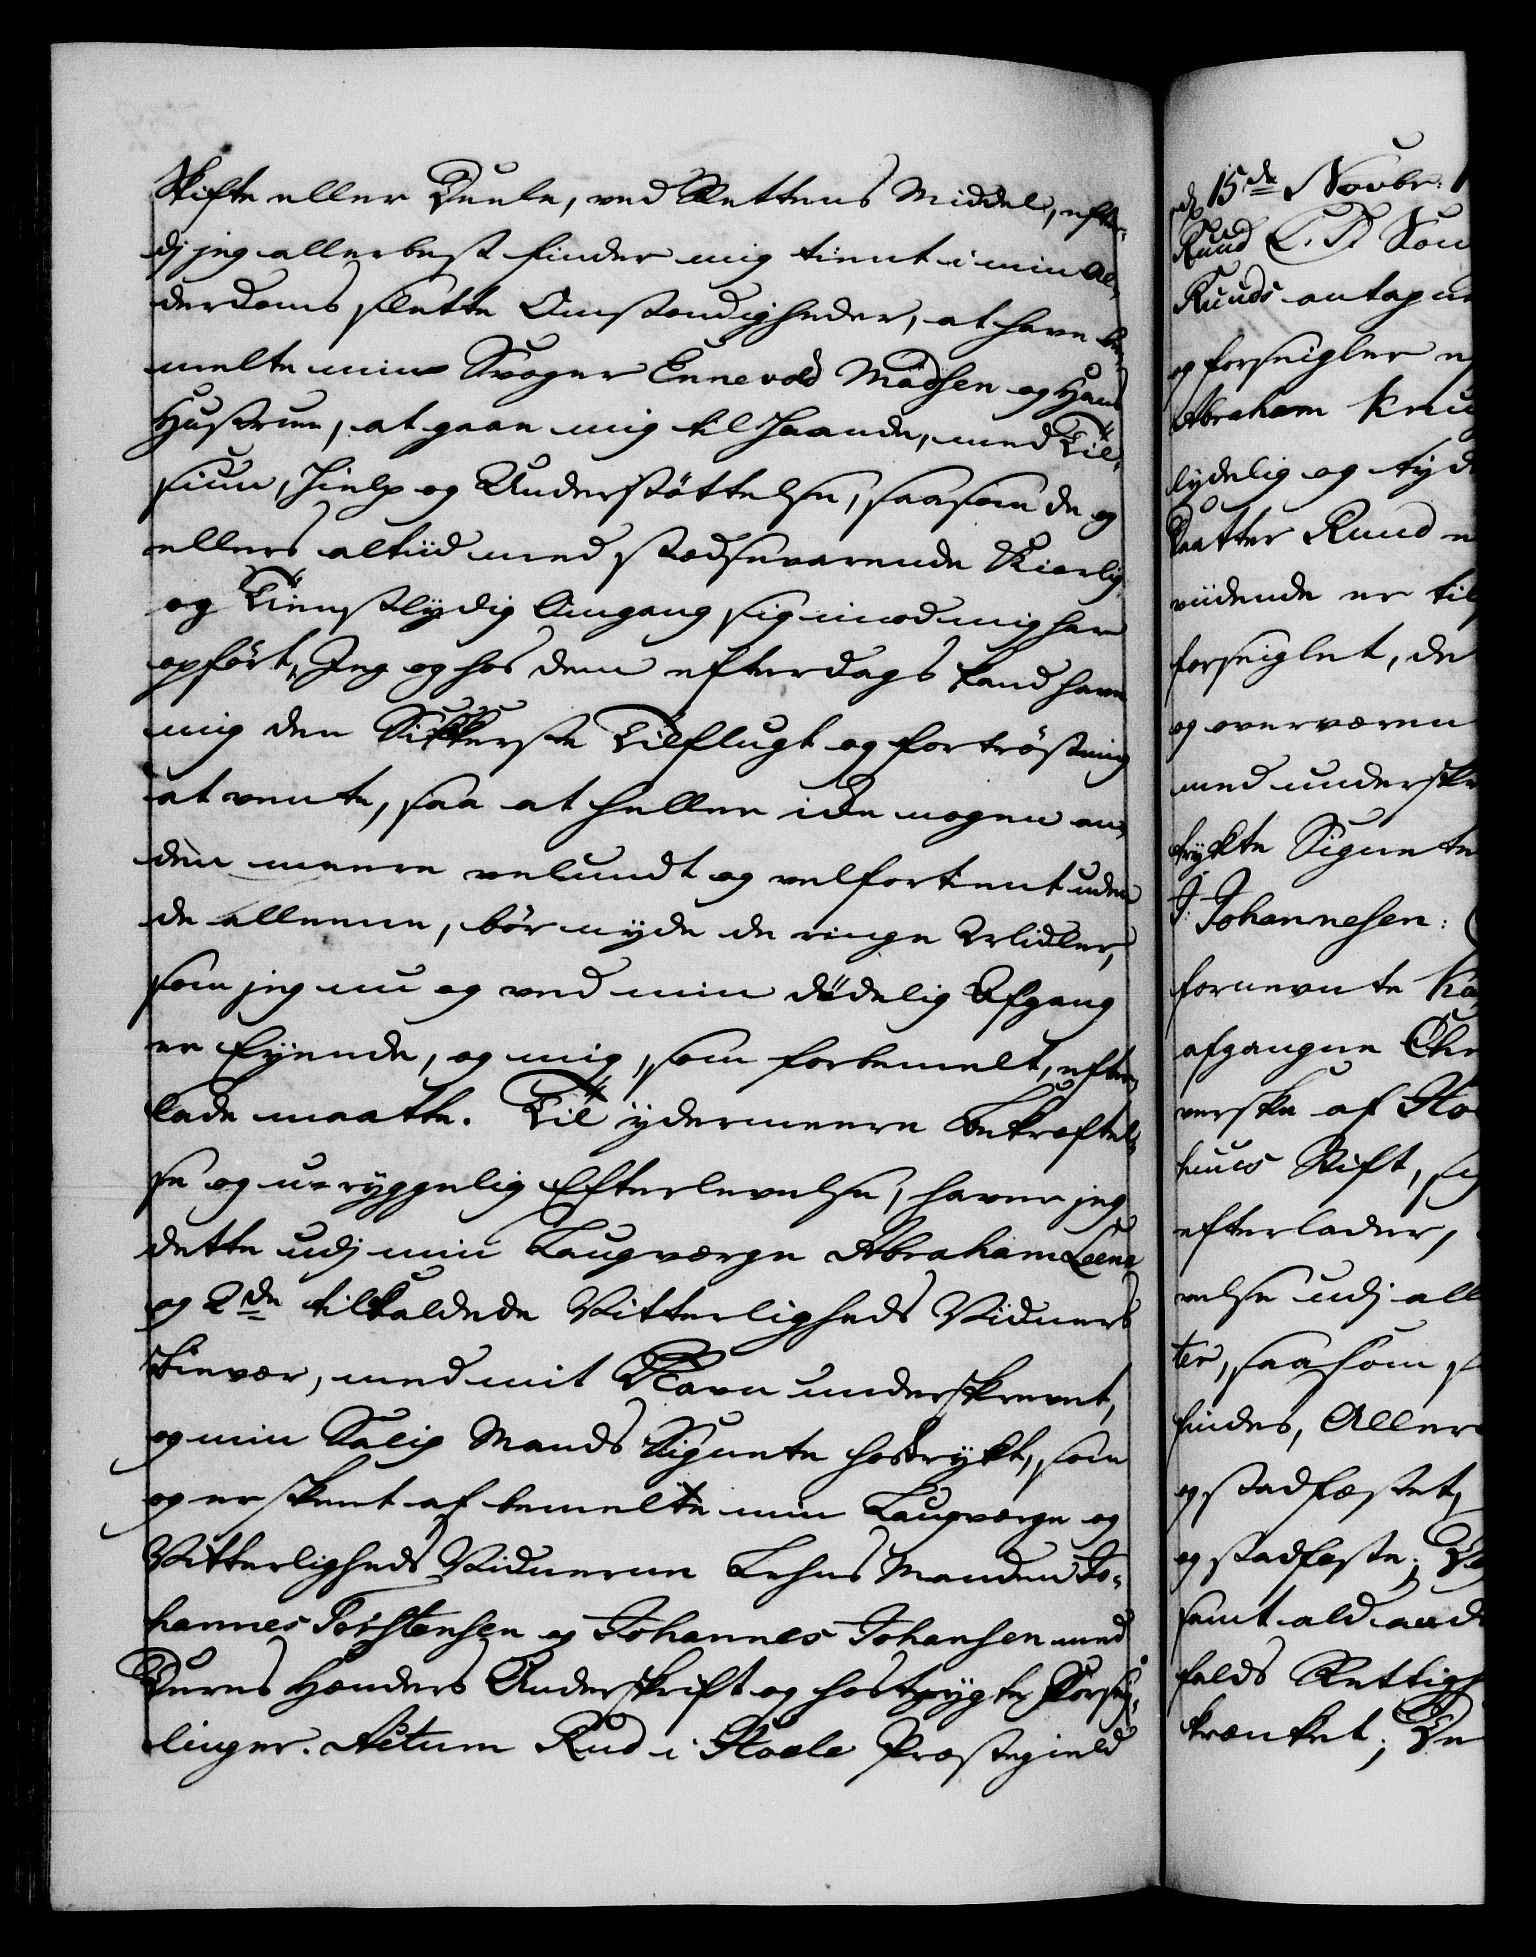 Skifte eller Deele, ved Rettens Middel, efter-
dj jeg allerbest finder mig tient i min Al-
derdoms slette Omstændigheder, at have be-
melte min Svoger Ennevold Madsen og Hans
Hustrue, at gaae mig til Haande, med Til-
siun, Hielp og Understøttelse, saasom de og
ellers altiid med stedsevarende Kierlig
og Tienstlydig Omgang sig imod mig har
opført, Jeg og hos dem efterdags kand have
mig den Sikkerste Tilflugt og fortrøstning
at vente, saa at heller ide nogen an-
den meere velundt og velfortient uden
de alleene, bør nyde de ringe Midler,
som jeg nu og ved min dødelig Afgang
er Eyende, og mig, som forbemelt, efter-
lade maatte. Til ydermeere Bekræftel-
se og u-ryggelig Efterlevelse, haver jeg
dette udj min Laugværge Abraham Leene
og 2de tilkaldede Vitterligheds Vidners
Nærvær, med mit Navn underskrevet,
og min Salig Mands Signete hostrykt, som
og er skeet af bemelte min Laugværge og
Vitterligheds Vidnerne Lehns Manden Jo-
hannes Torstensen og Johannes Johansen med
Deres Hænders Underskrift og hostrygte Forseg-
linger. Actum Rud i Hoele Præstegield
d 15de Novbr:
Ruud L. S.
Ruuds
og forseigler
Abraham Knu
lydelig og tyd
Datter Ruud
vidende er til
forseiglet, de
og overværen
med underskr
trykte Signete
J: Johannesen:
fornevnte
afgangne Chr
verske af
huus Stift,
efterlader,
velse udj all
ter, saasom
findes, Aller
og stadfæstet,
og stadfæste;
samt ald and
falds Rettigh
krænket; De